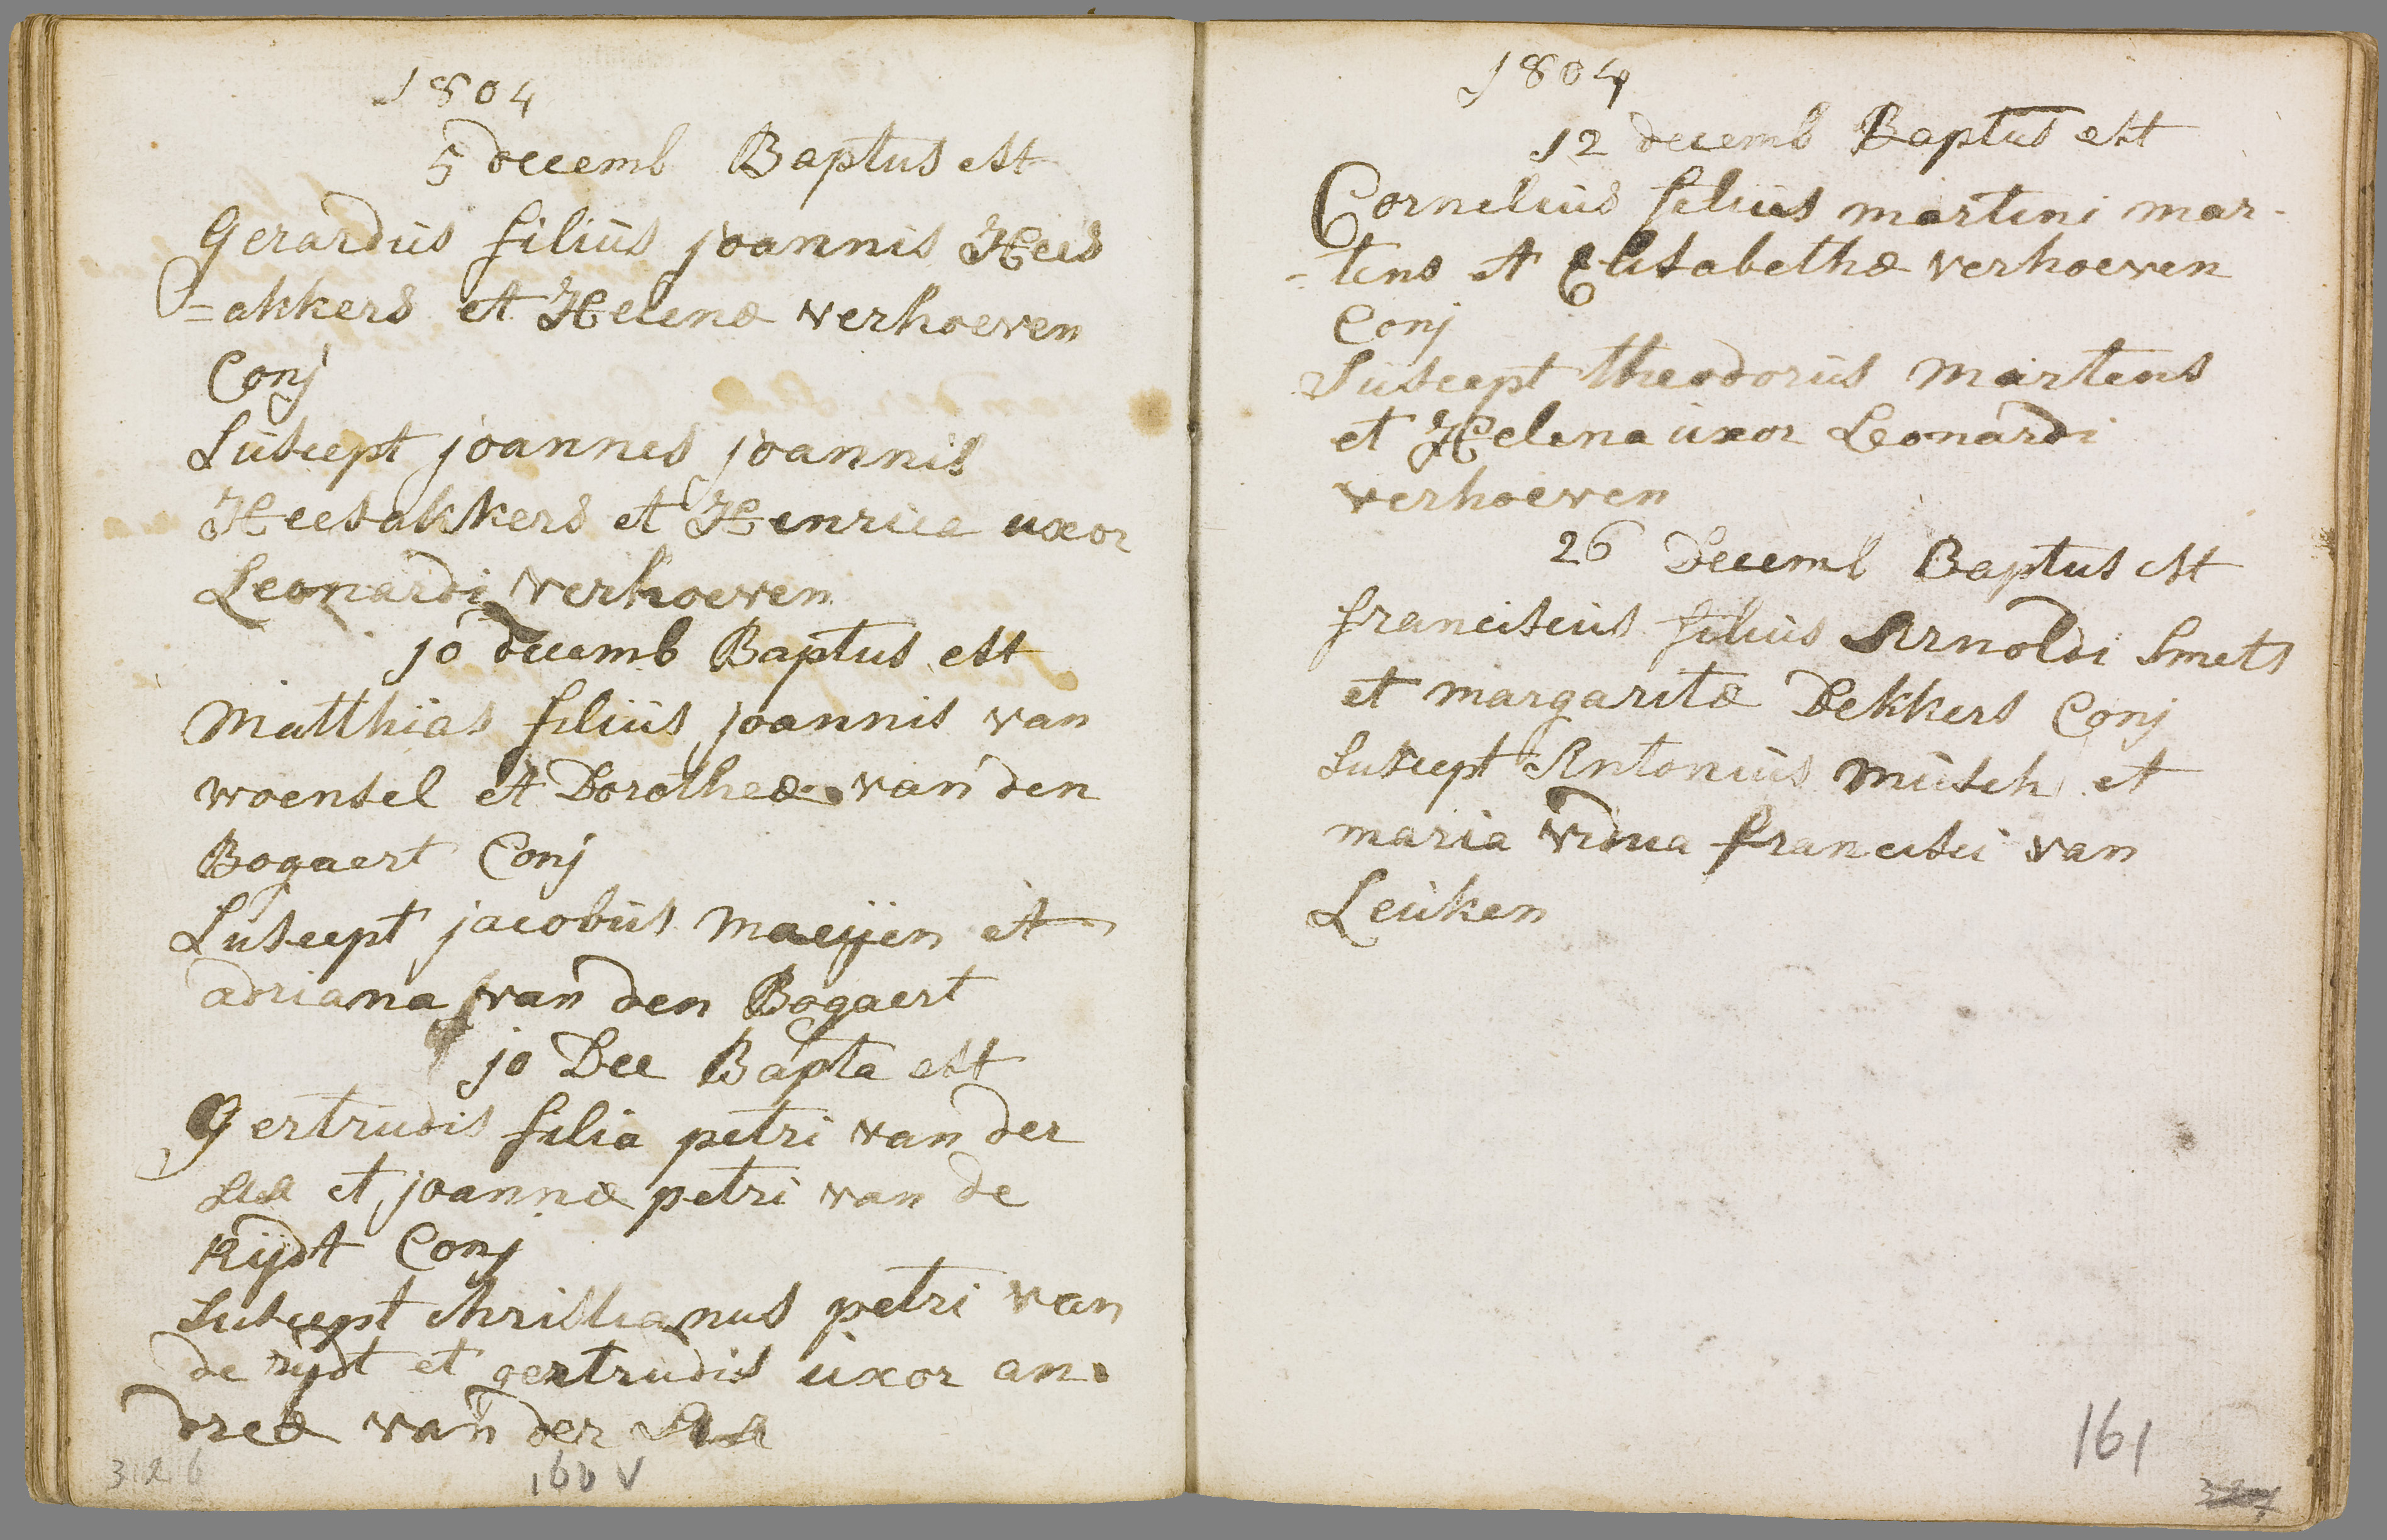 1804
5 decemb Baptus est
Gerardus filius joannis Hees
=akkers et Helenæ verhoeven
Conj
Suscept joannes joannis
Heesakkers et Henrica uxor
Leonardi verhoeven
10 decemb Baptus est
Matthias filius joannis van
woensel et Dorotheæ van den
Bogaert Conj
Suscept jacobus maeijen et
adriana van den Bogaert
10 Dec Bapta est
Gertrudis filia petri van der
Aa et joannæ petri van de
Rijdt Conj
Suscept christianus petri van
de rijdt et gertrudis uxor an-
dreæ van der Aa
326
160 v
1804
12 decemb Baptus est
Cornelius filius martini mar-
-tens et Elisabethæ verhoeven
Conj
Suscept theodorus martens
et Helena uxor Leonardi
verhoeven
26 Decemb Baptus est
franciscus filius Arnoldi Smets
et margaritæ Dekkers Conj
Suscept Antonius musch et
maria vidua francisci van
Leuken
161